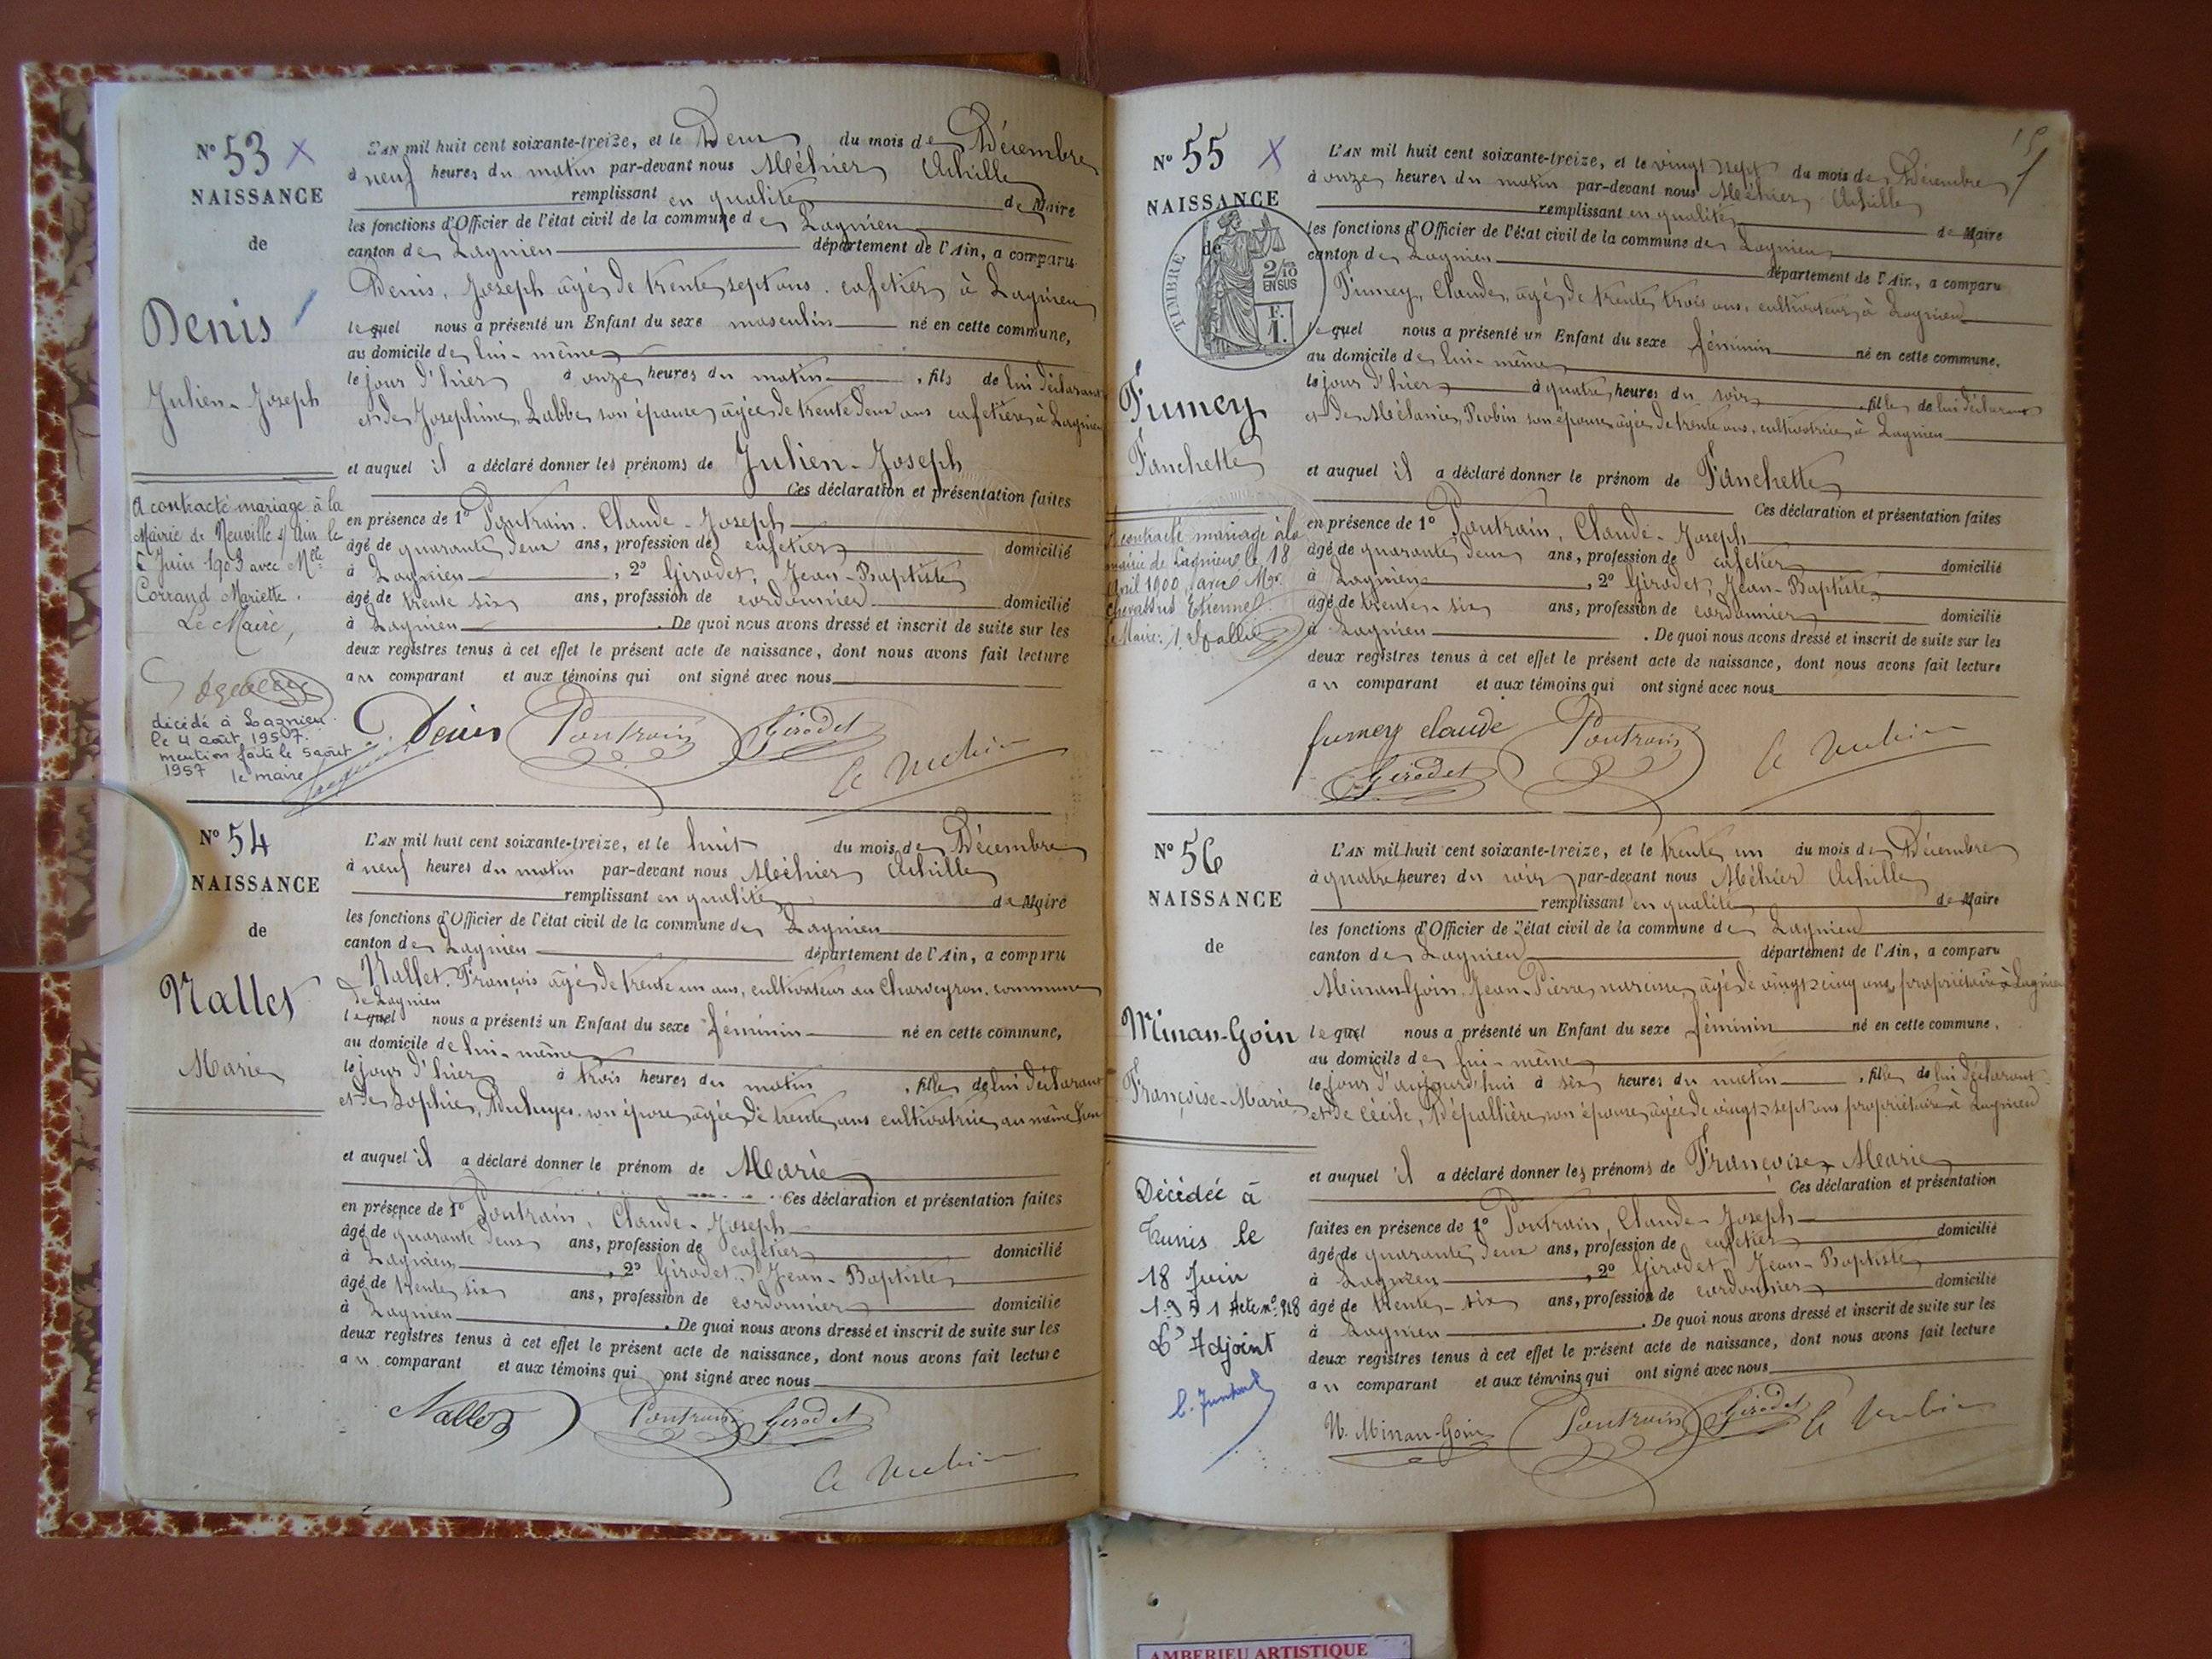 N° 53 X
NAISSANCE
de
Denis
Julien-Joseph
A contracté mariage à la
Mairie de Neuville s/ Ain le
6 Juin 1903 avec Mlle
Corrand Mariette.
Le Maire,
décédé à Lagnieu
le 4 août 1957.
mention faite le 5 août
1957 le maire
L'AN mil huit cent soixante-treize, et le Deux du mois de Décembre
à neuf heures du matin par-devant nous Méhier Achille
remplissant en qualité de Maire
les fonctions d'Officier de l'état civil de la commune de Lagnieu
canton de Lagnieu département de l'Ain, a comparu
Denis, Joseph âgé de trente sept ans, cafetier à Lagnieu
lequel nous a présenté un Enfant du sexe masculin né en cette commune,
au domicile de lui-même
le jour d'hier à onze heures du matin, fils de lui déclarant
et de Josephine Labbe son épouse, âgée de trente deux ans cafetière à Lagnieu
et auquel il a déclaré donner les prénoms de Julien-Joseph
Ces déclaration et présentation faites
en présence de 1° Poutrain, Claude-Joseph
âgé de quarante deux ans, profession de cafetier domicilié
à Lagnieu, 2° Girodet, Jean-Baptiste
âgé de trente six ans, profession de cordonnier domicilié
à Lagnieu. De quoi nous avons dressé et inscrit de suite sur les
deux registres tenus à cet effet le présent acte de naissance, dont nous avons fait lecture
au comparant et aux témoins qui ont signé avec nous
Denis Poutrain Girodet
N° 54
NAISSANCE
de
Nallet
Marie
L'AN mil huit cent soixante-treize, et le huit du mois de Décembre
à neuf heures du matin par-devant nous Méhier Achille
remplissant en qualité de Maire
les fonctions d'Officier de l'état civil de la commune de Lagnieu
canton de Lagnieu département de l'Ain, a comparu
Nallet, François âgé de trente un ans, cultivateur au Charveyron, commune
de Lagnieu
lequel nous a présenté un Enfant du sexe féminin né en cette commune,
au domicile de lui-même
le jour d'hier à trois heures du matin, fille de lui déclarant
et de Sophie, son épouse, âgée de trente ans cultivatrice au même lieu
et auquel il a déclaré donner le prénom de Marie
Ces déclaration et présentation faites
en présence de 1° Poutrain, Claude-Joseph
âgé de quarante deux ans, profession de cafetier domicilié
à Lagnieu, 2° Girodet, Jean-Baptiste
âgé de trente six ans, profession de cordonnier domicilié
à Lagnieu. De quoi nous avons dressé et inscrit de suite sur les
deux registres tenus à cet effet le présent acte de naissance, dont nous avons fait lecture
au comparant et aux témoins qui ont signé avec nous
Nallet Poutrain Girodet
N° 55 X
NAISSANCE
de
TIMBRE
2/10
EN SUS
F.
1.
Fumey
Fanchette
contracté mariage à la
mairie de Lagnieu le 18
Avril 1900, avec Mr
Chevassus Etienne
Le Maire:
L'AN mil huit cent soixante-treize, et le vingt sept du mois de Décembre
à onze heures du matin par-devant nous Méhier Achille
remplissant en qualité de Maire
les fonctions d'Officier de l'état civil de la commune de Lagnieu
canton de Lagnieu département de l'Ain, a comparu
Fumey, Claude, âgé de trente trois ans, cultivateur à Lagnieu
lequel nous a présenté un Enfant du sexe féminin né en cette commune,
au domicile de lui-même
le jour d'hier à quatre heures du soir, fille de lui déclarant
et de Mélanie, Probin son épouse âgée de trente ans, cultivatrice à Lagnieu
et auquel il a déclaré donner le prénom de Fanchette
Ces déclaration et présentation faites
en présence de 1° Poutrain, Claude-Joseph
âgé de quarante deux ans, profession de cafetier domicilié
à Lagnieu, 2° Girodet, Jean-Baptiste
âgé de trente-six ans, profession de cordonnier domicilié
à Lagnieu. De quoi nous avons dressé et inscrit de suite sur les
deux registres tenus à cet effet le présent acte de naissance, dont nous avons fait lecture
au comparant et aux témoins qui ont signé avec nous
fumey claude Poutrain
Girodet
N° 56
NAISSANCE
de
Minan-Goin
Françoise-Marie
Décédée à
Tunis le
18 Juin
1951 Acte n° 918
L'Adjoint
L'AN mil huit cent soixante-treize, et le trente un du mois de Décembre
à quatre heures du soir par-devant nous Méhier Achille
remplissant en qualité de Maire
les fonctions d'Officier de l'état civil de la commune de Lagnieu
canton de Lagnieu département de l'Ain, a comparu
Minan-Goin, Jean-Pierre narcisse, âgé de vingt cinq ans, propriétaire à Lagnieu
lequel nous a présenté un Enfant du sexe féminin né en cette commune,
au domicile de lui-même
le jour d'aujourd'hui à six heures du matin, fille de lui déclarant
et de Cécile, Dépallière son épouse, âgée de vingt sept ans propriétaire à Lagnieu
et auquel il a déclaré donner les prénoms de Françoise Marie
Ces déclaration et présentation
faites en présence de 1° Poutrain, Claude-Joseph domicilié
âgé de quarante deux ans, profession de cafetier
à Lagnieu, 2° Girodet, Jean-Baptiste
âgé de trente-six ans, profession de cordonnier domicilié
à Lagnieu. De quoi nous avons dressé et inscrit de suite sur les
deux registres tenus à cet effet le présent acte de naissance, dont nous avons fait lecture
au comparant et aux témoins qui ont signé avec nous
N. Minan-Goin Poutrain Girodet
AMBERIEU ARTISTIQUE